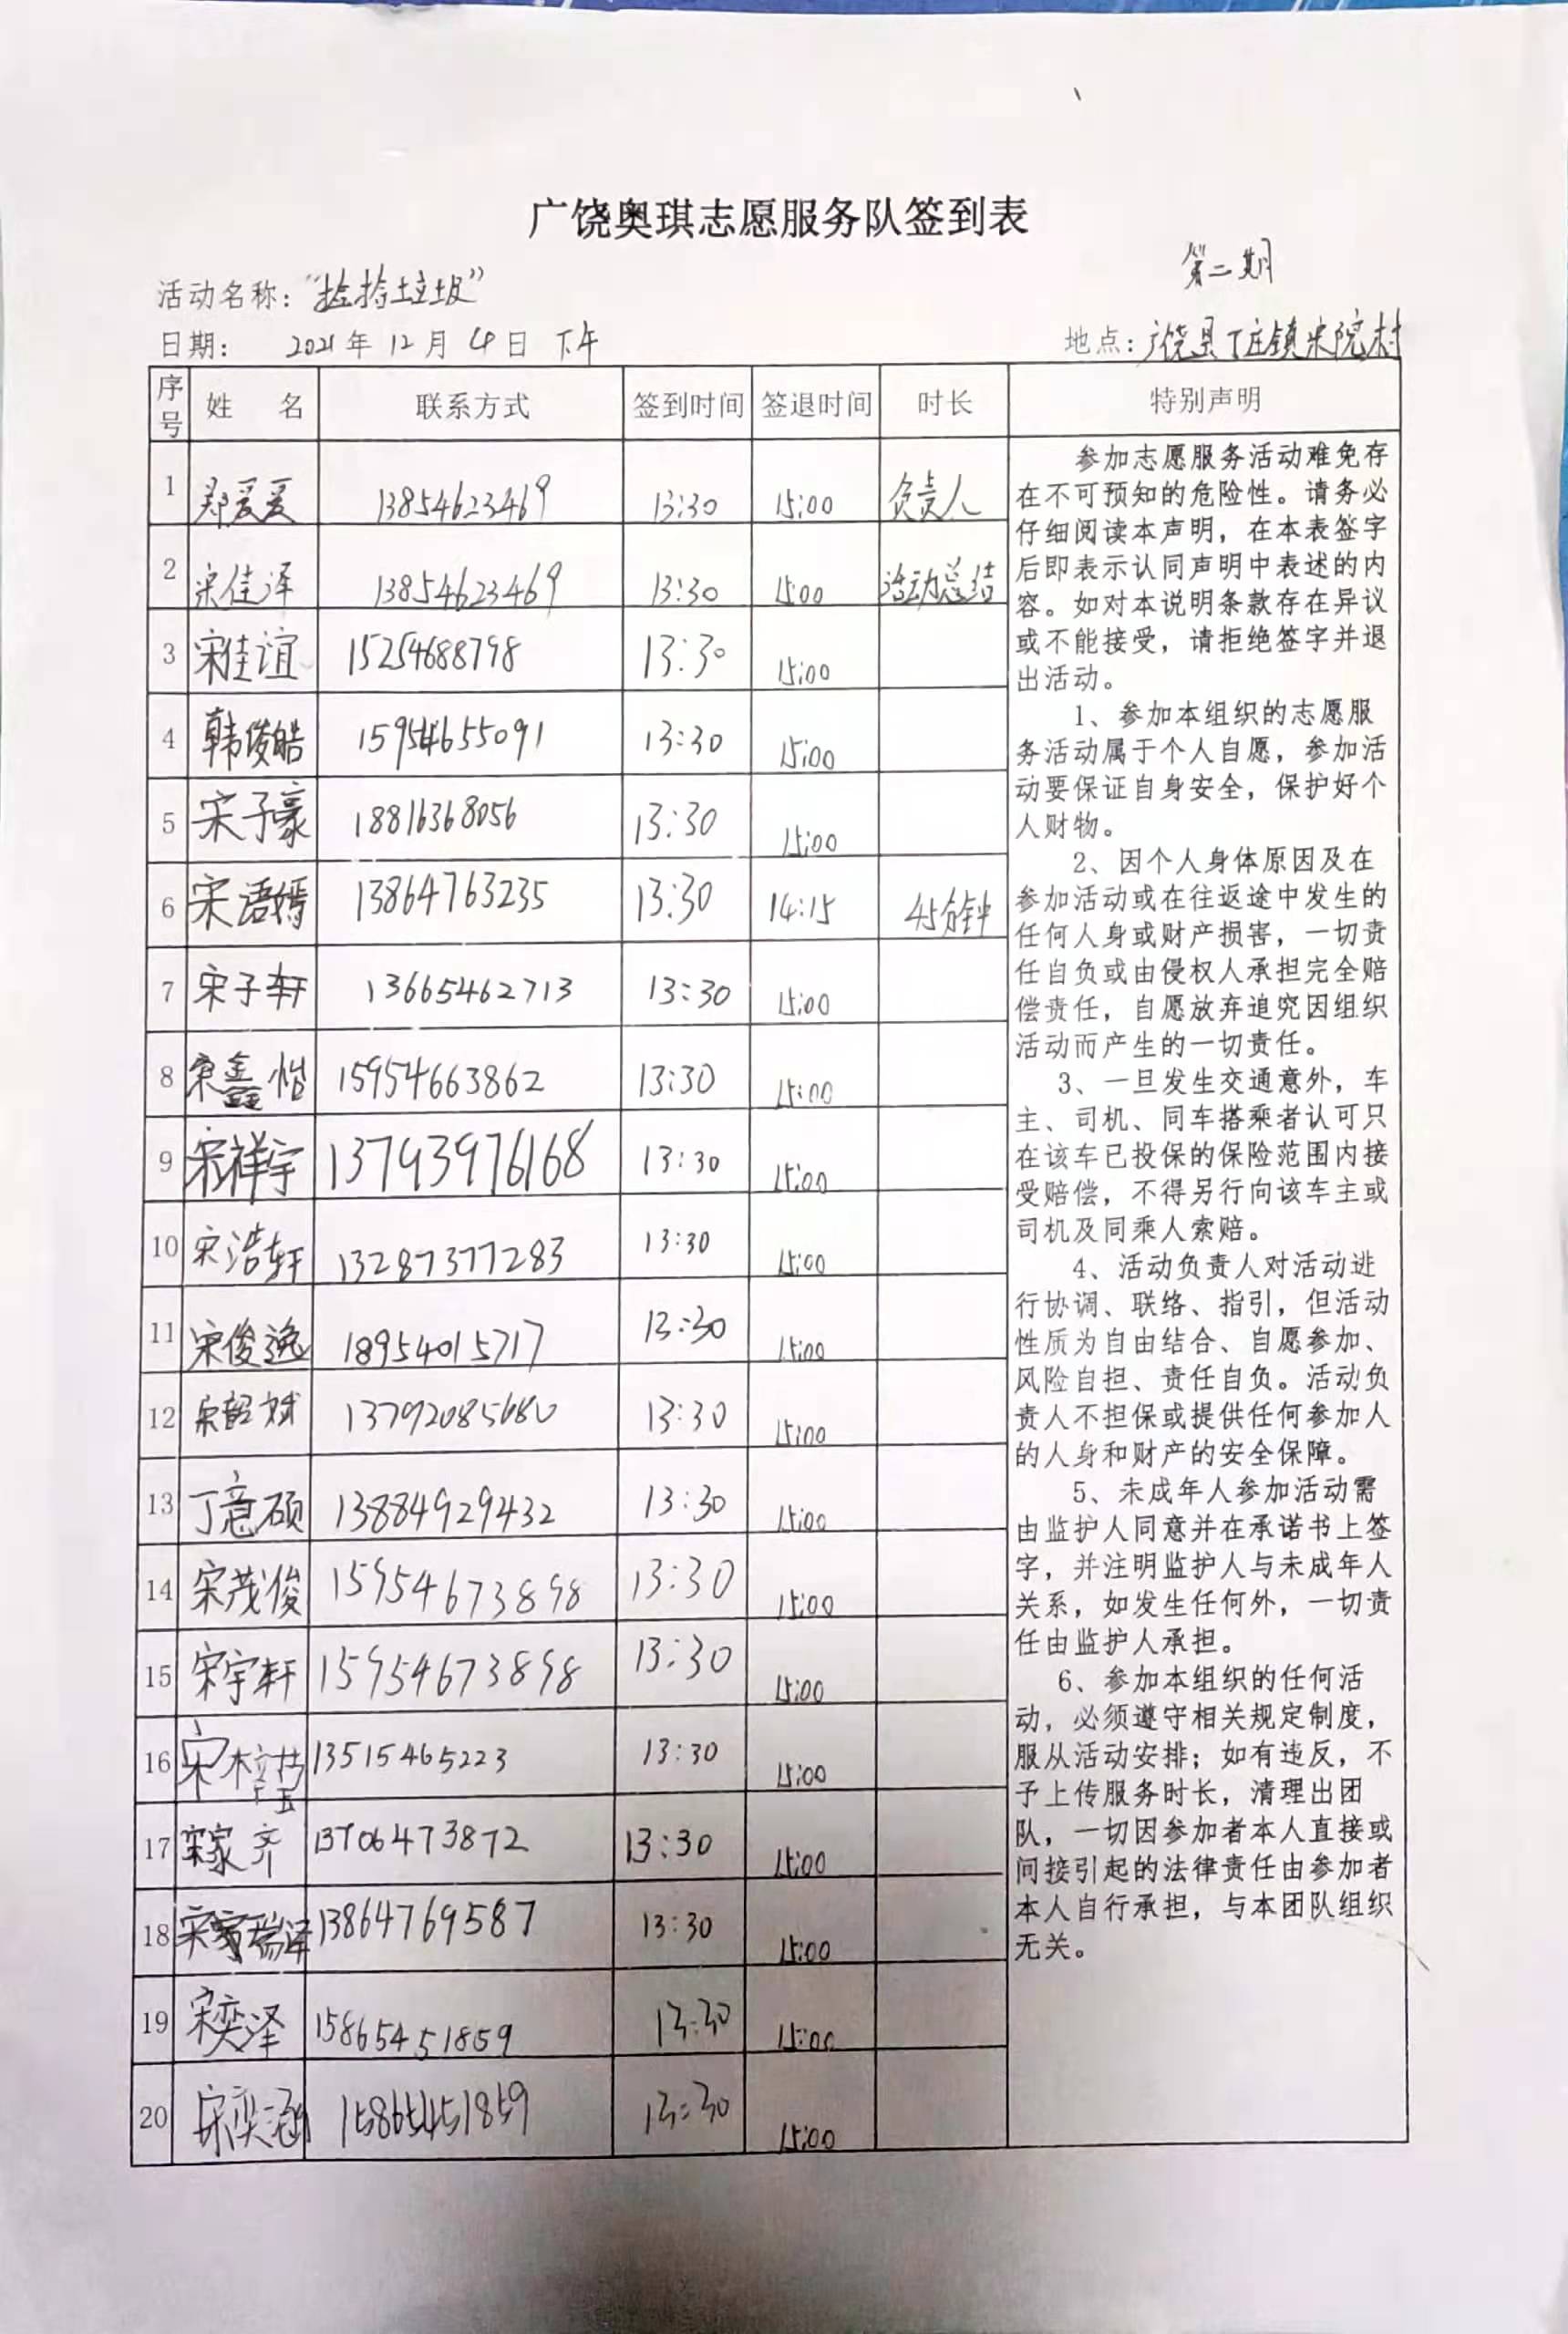 广饶奥琪志愿服务队签到表
第二期
活动名称：“捡捡垃圾”
日期： 2021年 12月 4日 下午 地点：广饶县丁庄镇宋院村
序号 姓 名 联系方式 签到时间 签退时间 时长 特别声明
1 郑爱爱 13854623469 13:30 15:00 负责人
2 宋佳泽 13854623469 13:30 15:00 活动总结
3 宋佳谊 15254688798 13:30 15:00
4 韩俊皓 15954655091 13:30 15:00
5 宋子豪 18816368056 13:30 15:00
6 宋语嫣 13864763235 13:30 14:15 45分钟
7 宋子轩 13665462713 13:30 15:00
8 宋鑫怡 15954663862 13:30 15:00
9 宋祥宇 13793976168 13:30 15:00
10 宋浩轩 13287377283 13:30 15:00
11 宋俊逸 18954015717 13:30 15:00
12 宋韶斌 13792085680 13:30 15:00
13 丁意硕 13884929432 13:30 15:00
14 宋茂俊 15954673898 13:30 15:00
15 宋宇轩 15954673898 13:30 15:00
16 宋梓 13515465223 13:30 15:00
17 宋家齐 13706473872 13:30 15:00
18 宋瑞泽 13864769587 13:30 15:00
19 宋奕泽 15865451859 13:30 15:00
20 宋奕涵 15865451859 13:30 15:00
参加志愿服务活动难免存
在不可预知的危险性。请务必
仔细阅读本声明，在本表签字
后即表示认同声明中表述的内
容。如对本说明条款存在异议
或不能接受，请拒绝签字并退
出活动。
1、参加本组织的志愿服
务活动属于个人自愿，参加活
动要保证自身安全，保护好个
人财物。
2、因个人身体原因及在
参加活动或在往返途中发生的
任何人身或财产损害，一切责
任自负或由侵权人承担完全赔
偿责任，自愿放弃追究因组织
活动而产生的一切责任。
3、一旦发生交通意外，车
主、司机、同车搭乘者认可只
在该车已投保的保险范围内接
受赔偿，不得另行向该车主或
司机及同乘人索赔。
4、活动负责人对活动进
行协调、联络、指引，但活动
性质为自由结合、自愿参加、
风险自担、责任自负。活动负
责人不担保或提供任何参加人
的人身和财产的安全保障。
5、未成年人参加活动需
由监护人同意并在承诺书上签
字，并注明监护人与未成年人
关系，如发生任何外，一切责
任由监护人承担。
6、参加本组织的任何活
动，必须遵守相关规定制度，
服从活动安排；如有违反，不
予上传服务时长，清理出团
队，一切因参加者本人直接或
间接引起的法律责任由参加者
本人自行承担，与本团队组织
无关。